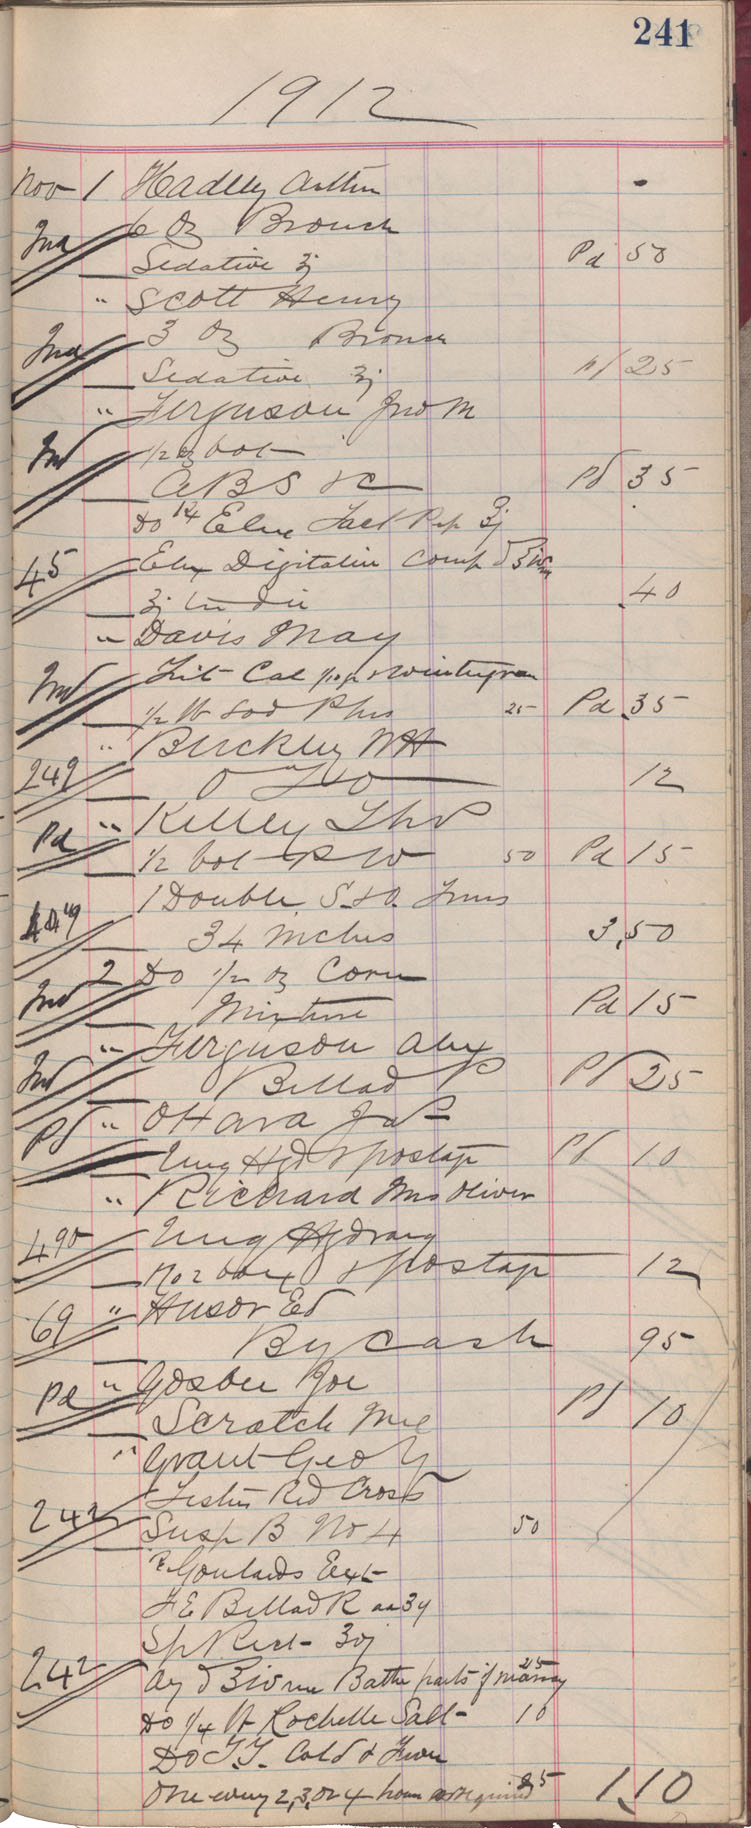 241
1912
Nov 1 Hadley Arthur -
Ind 6 Oz Bronch
Sedative ʒj Pd 50
" Scott Henry
Ind 3 Oz Bronch
Sedative ʒj Pd 25
" Ferguson Jno M
Ind 1/2 oz bot
A B S & C Pd 35
Do 12 Elix Lact Pep ʒj
45 Elix Digitalin Comp
ʒj .40
" Davis May
Ind Wintergreen
1/2 lb Sod Phos 25 Pd .35
" Buckley W H
249 12
Pd " Kelley Thos
1/2 bot P W 50 Pd 15
1 Double S. & O. Truss
449 34 inches 3.50
2 Do 1/2 oz Corn
Ind Mixture Pd 15
" Ferguson Alex
Ind Bellad P Pd 25
Pd " O Hara Jas
Ung Hyd & postage Pd 10
" Richard Mrs Oliver
490 Ung Hydrarg
No 2 box & postage 12
69 " Husor Ed
By Cash 95
Pd " Gosbee Joe
Scratch Me Pd 10
" Grant Geo Y
Red Cross
242 Susp B No 4 50
Goulards Ext
F E Bellad R aa ʒij
Sp Rect ʒvj
242 Aq Bathe parts if 25
Do 1/4 lb Rochelle Salt 10
Do T.T. Cold & Fever
One every 2, 3, or 4 hours as required 25 1.10